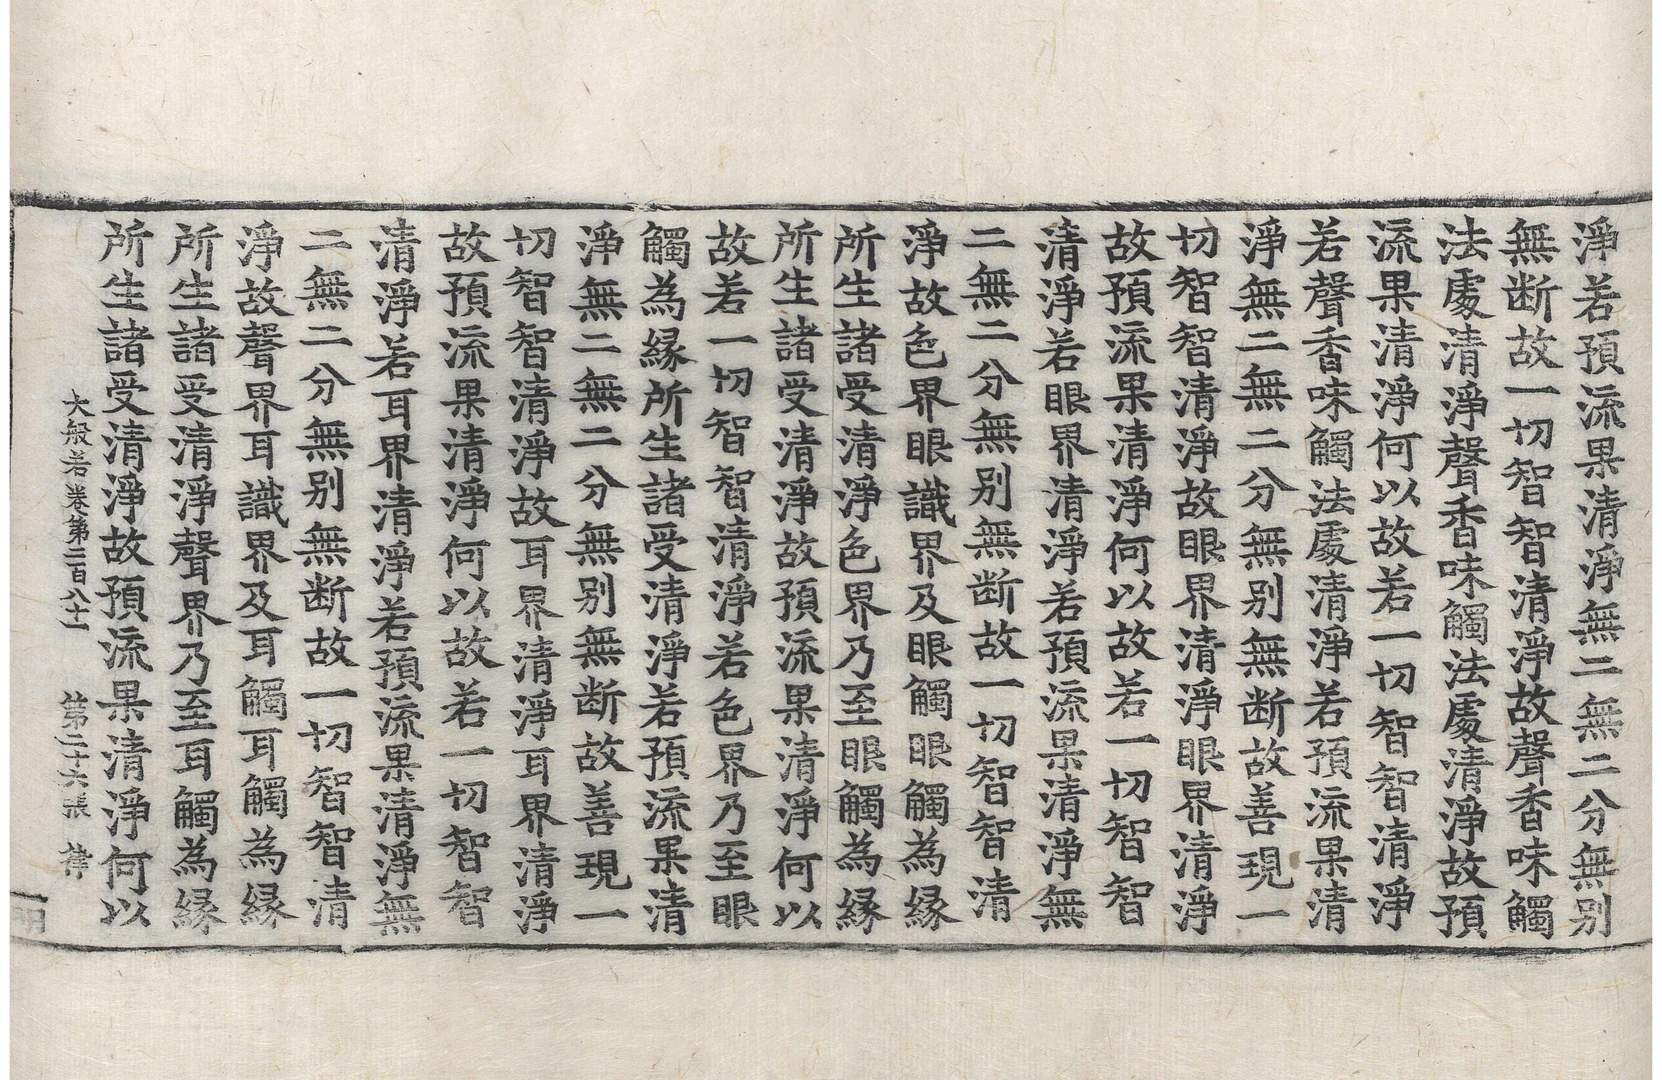 淨若預流果清淨無二無二分無别
無断故一切智智清淨故聲香味觸
法處清淨聲香味觸法處清淨故預
流果清淨何以故若一切智智清淨
若聲香味觸法處清淨若預流果清
淨無二無二分無别無断故善現一
切智智清淨故眼界清淨眼界清淨
故預流果清淨何以故若一切智智
清淨若眼界清淨若預流果清淨無
二無二分無别無断故一切智智清
淨故色界眼識界及眼觸眼觸為緣
所生諸受清淨色界乃至眼觸為緣
所生諸受清淨故預流果清淨何以
故若一切智智清淨若色界乃至眼
觸為緣所生諸受清淨若預流果清
淨無二無二分無别無断故善現一
切智智清淨故耳界清淨耳界清淨
故預流果清淨何以故若一切智智
清淨若耳界清淨若預流果清淨無
二無二分無别無断故一切智智清
淨故聲界耳識界及耳觸耳觸為緣
所生諸受清淨聲界乃至耳觸為緣
所生諸受清淨故預流果清淨何以
大般若卷第二百八十一 第二十六張 律